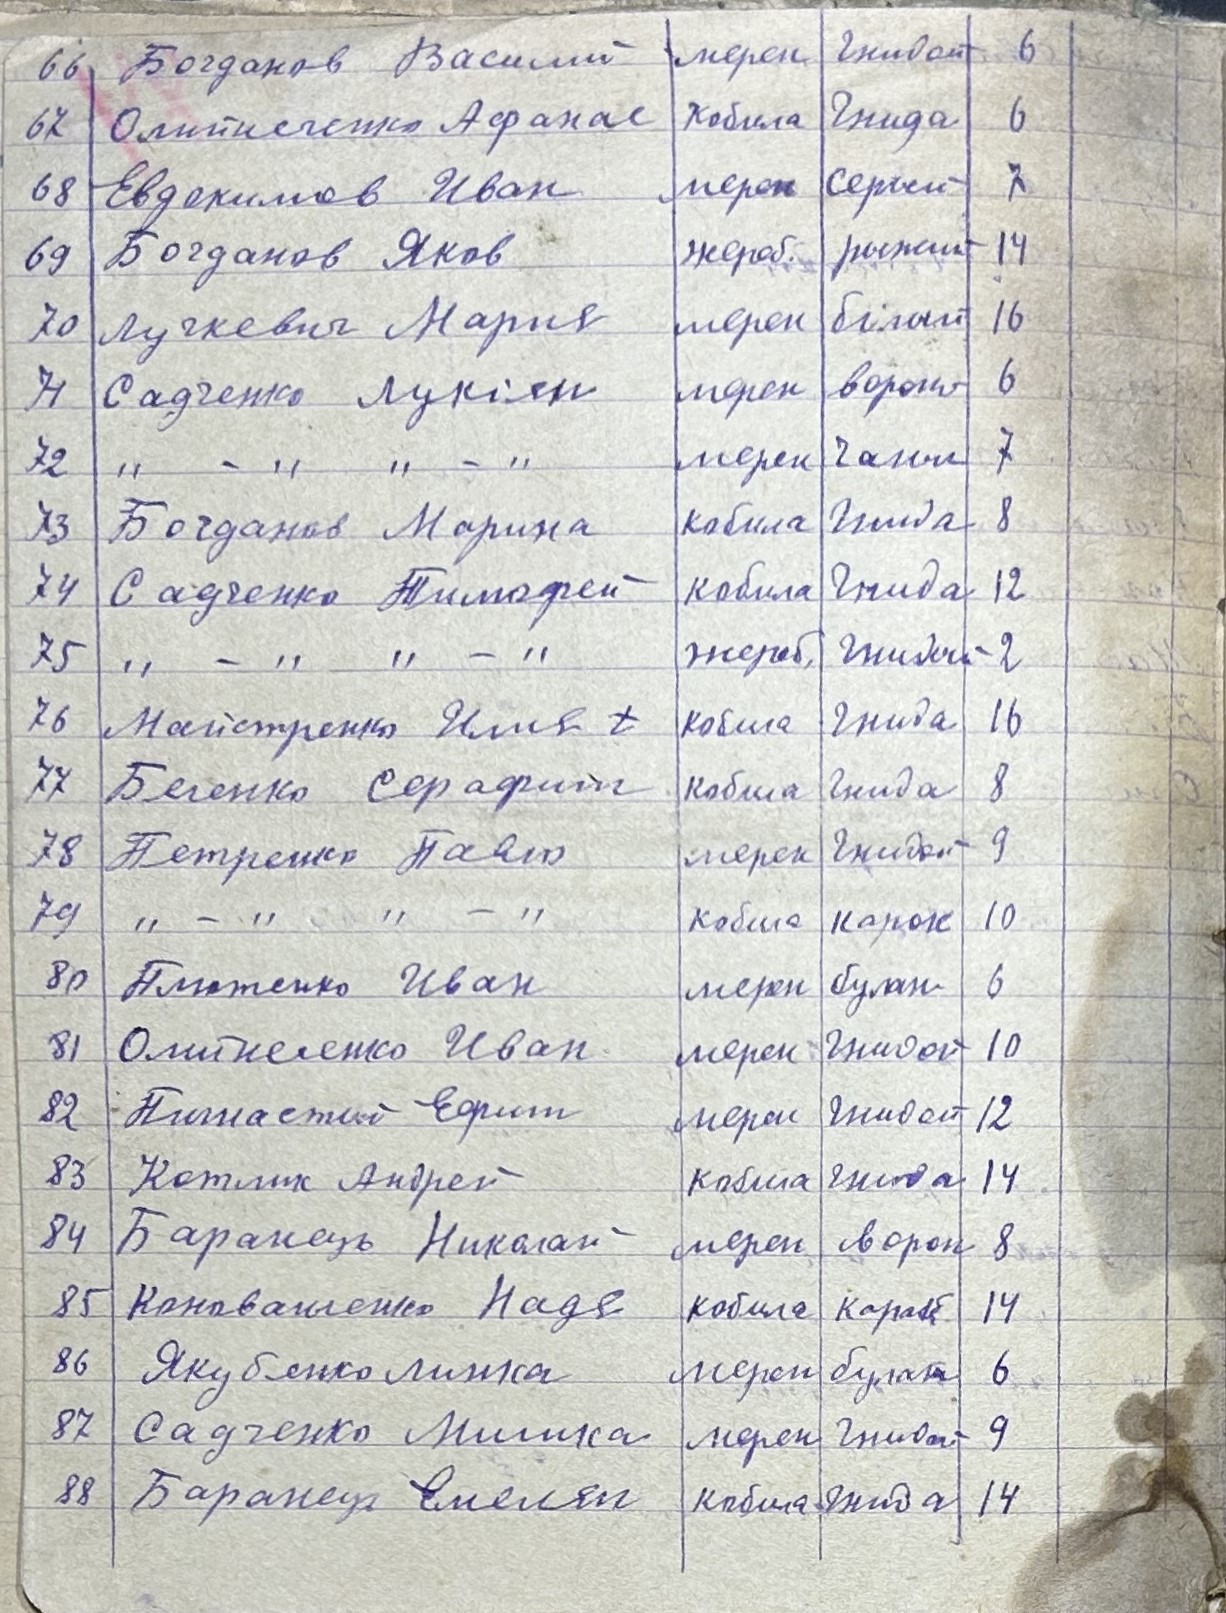 66 Богданов Василий мерен Гнидой 6
67 Олийнеченко Афанас Кобила Гнида 6
68 Евдекимов Иван мерен серый 7
69 Богданов Яков жереб. рыжий 14
70 Лучкевич Мария мерен білый 16
71 Садченко Лукіян мерен ворон 6
72 " - " " - " мерен чалый 7
73 Богданов Марина кобила Гнида 8
74 Садченко Тимофей кобила Гнида 12
75 " - " " - " жереб. Гнидой 2
76 Майстренко Илля + кобила Гнида 16
77 Беленко Серафим кобила Гнида 8
78 Петренко Павло мерен Гнидой 9
79 " - " " - " кобила карой 10
80 Плютенко Иван мерен булан 6
81 Олийнеленко Иван мерен Гнидой 10
82 Ефим мерен Гнидой 12
83 Котлик Андрей кобила Гнида 14
84 Баранець Николай мерен ворон 8
85 Коноваленко Надя кобила 14
86 Якубенко мерен булан 6
87 Садченко Мишка мерен Гнидой 9
88 Баранець Емелян кобила Гнида 14